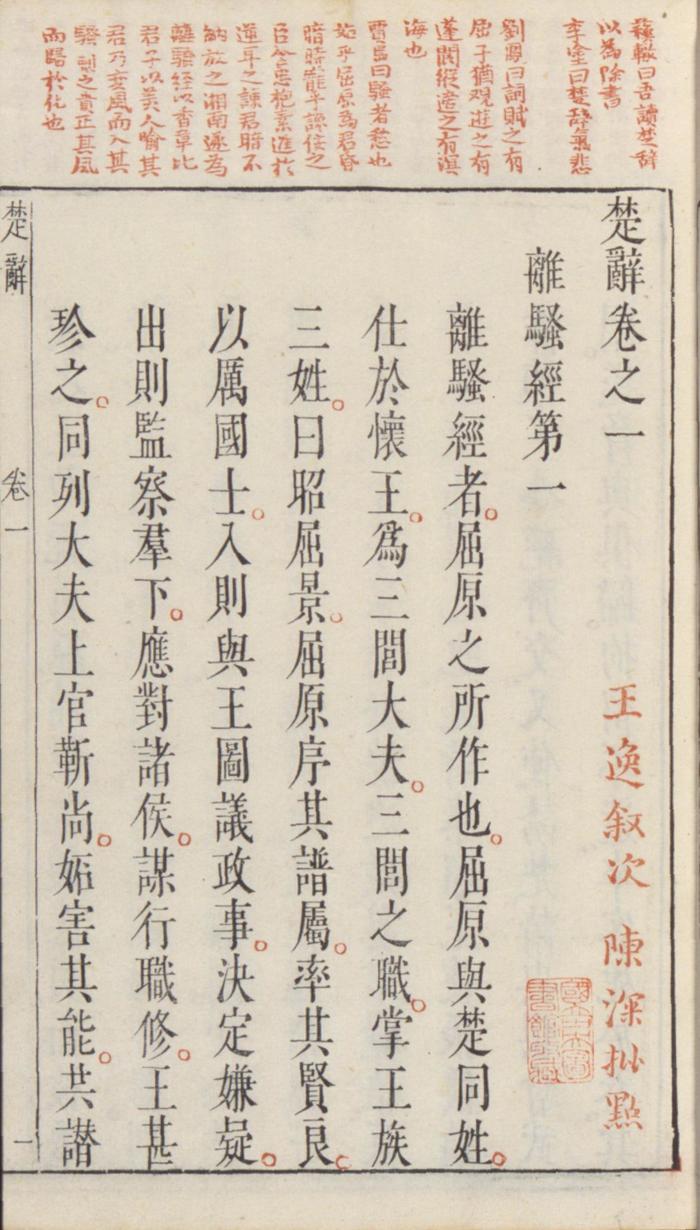 蘇轍曰吾讀楚辭
以為除書
李塗曰楚辭氣悲
劉鳳曰詞賦之有
屈子猶觀遊之有
蓬閬縱適之有溟
海也
賈島曰騷者愁也
始乎屈原為君昏
暗時寵乎讒佞之
臣含忠抱素進於
逆耳之諫君暗不
納放之湘南遂為
離騷經以香草比
君子以美人喻其
君乃變風而入其
騷刺之貴正其風
而歸於化也
楚辭卷之一
王逸叙次 陳深批點
離騷經第一
離騷經者。屈原之所作也。屈原與楚同姓。
仕於懷王。爲三閭大夫。三閭之職。掌王族
三姓。曰昭屈景。屈原序其譜屬。率其賢良。
以厲國士。入則與王圖議政事。決定嫌疑。
出則監察羣下。應對諸侯。謀行職修。王甚
珍之。同列大夫上官靳尚。妬害其能。共譖
楚辭 卷一 一